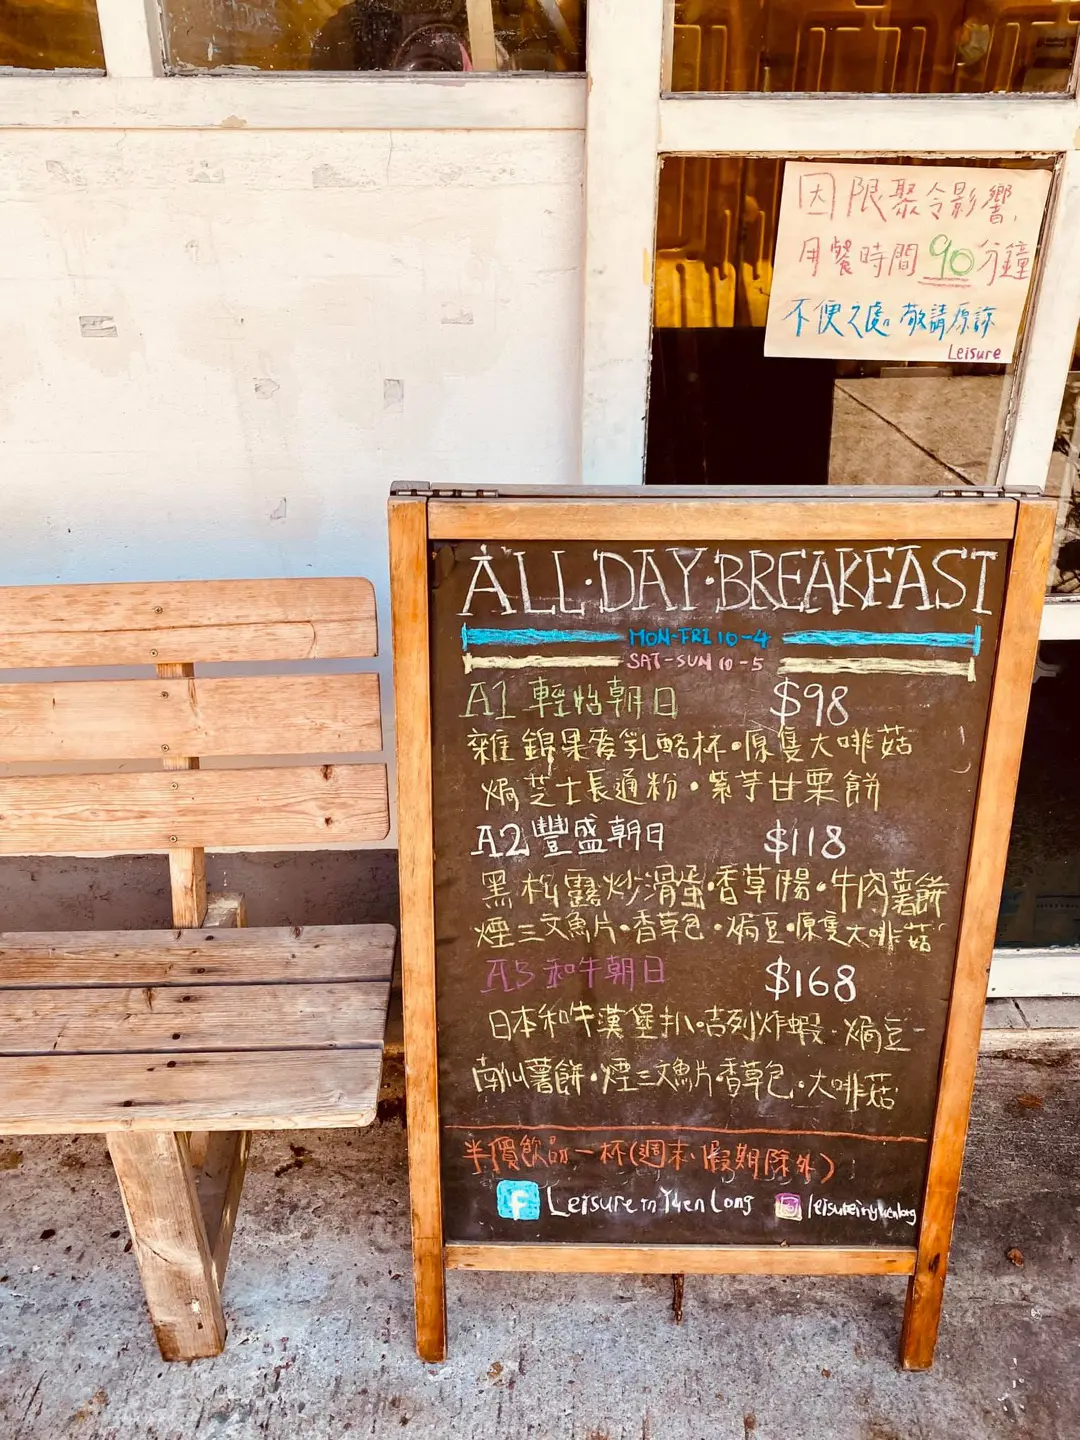 因限聚令影響,
用餐時間 90 分鐘
不便之處。敬請原諒
Leisure
ALL·DAY·BREAKFAST
MON-FRI 10-4
SAT-SUN 10-5
A1 輕怡朝日 $98
雜錦果麥乳酪杯·原隻大啡菇
焗芝士長通粉·紫芋甘栗餅
A2 豐盛朝日 $118
黑松露炒滑蛋·香草腸·牛肉薯餅
煙三文魚片·香草包·焗豆·原隻大啡菇
A3 和牛朝日 $168
日本和牛漢堡扒·吉列炸蝦·焗豆
南仙薯餅·煙三文魚片香草包·大啡菇
半價飲品一杯(週末、假期除外)
f Leisure in Yuen Long leisureinyuenlong